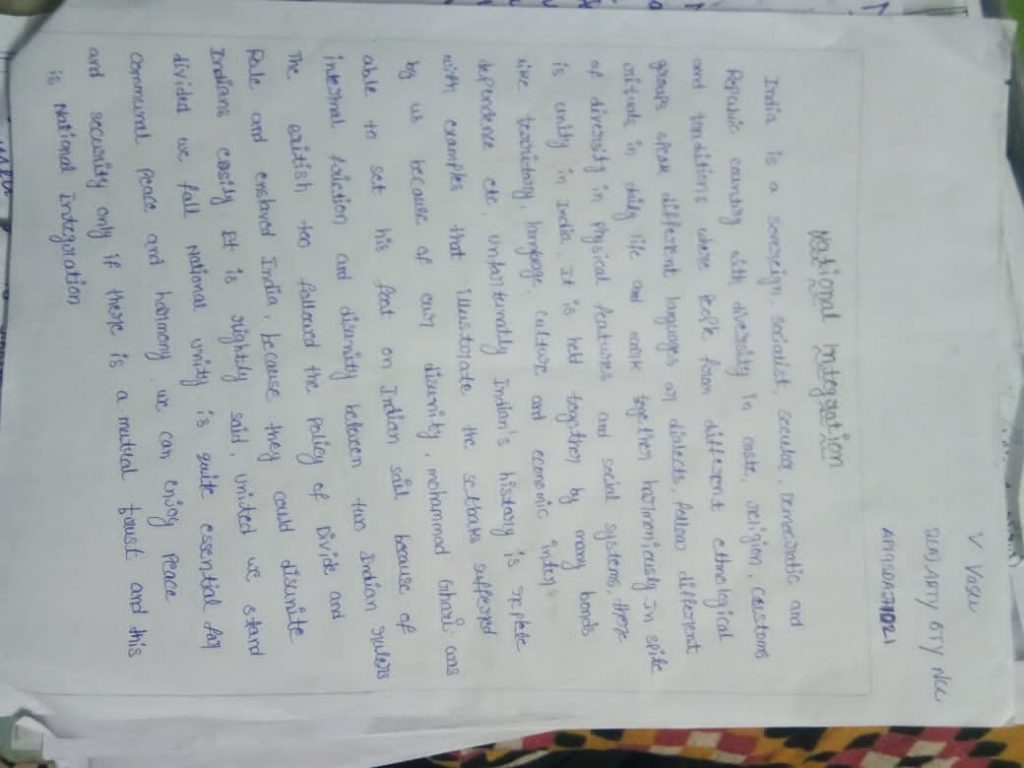 V Vasu
2(I) ARTY BTY NCC
National Integration
India is a sovereign, socialist, secular, democratic and
Republic country with diversity in caste, religion, customs
and tranditions where people from different ethnological
groups speak different languages or dialects, follow different
rituals in daily life and work together harmonically in spite
of diversity in physical features and social systems, there
is unity in India. It is held together by many bonds
like territory, language, culture and economic inter
dependence etc. Unfortunatly Indian's history is replete
with examples that illustrate the setbacks suffered
by us because of our disunity, mohammad Ghazni was
able to set his foot on Indian soil because of
internal friction and disunity between two Indian rulers
The british too followed the policy of Divide and
Rule and enslaved India, because they could disunite
Indians easily. It is rightly said, united we stand
divided we fall National unity is quite essential for
communal peace and harmony we can enjoy peace
and security only if there is a mutual trust and this
is National Integration